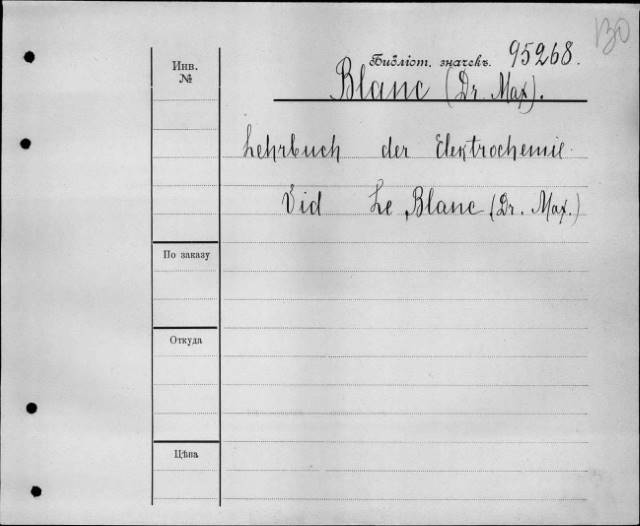 130
Библіот. значекъ. 95268.
Инв.
№
Blanc (Dr. Max).
Lehrbuch der Elektrochemie.
Vid Le Blanc (Dr. Max.)
По заказу
Откуда
Цѣна